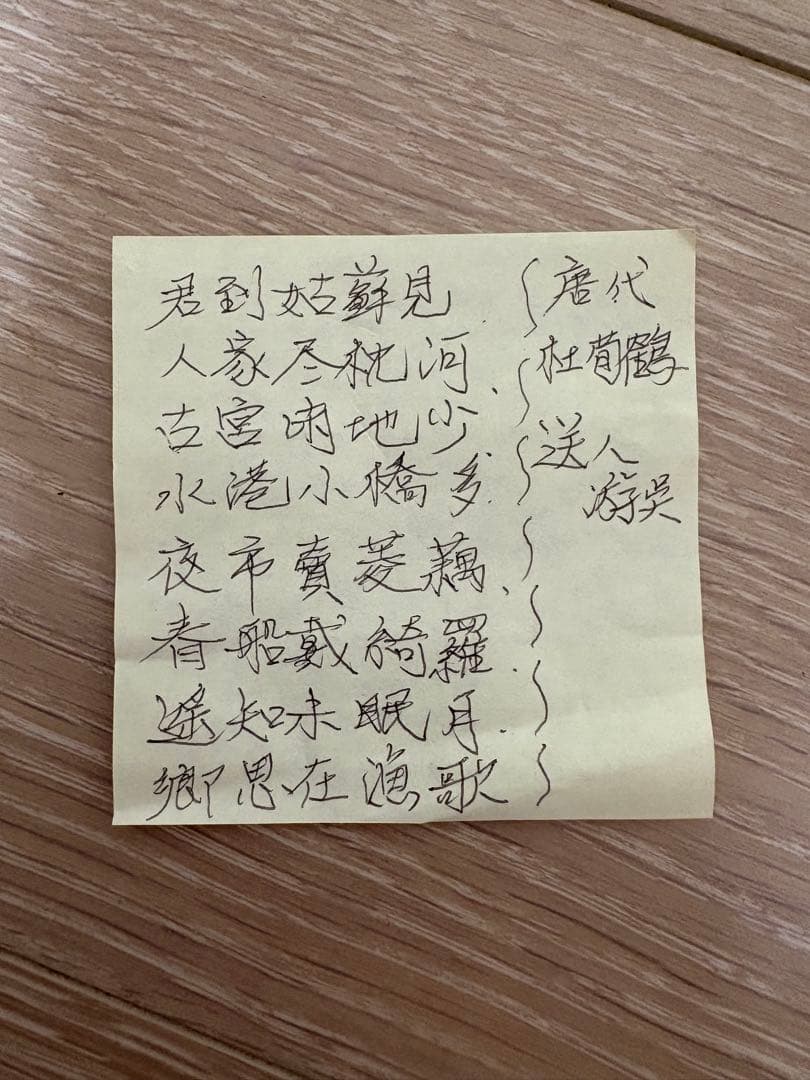 君到姑蘇見
人家尽枕河
古宮闲地少
水港小橋多
夜市賣菱藕
春船戴綺羅
遙知未眠月
鄉思在漁歌
唐代
杜荀鶴
送人
游吳